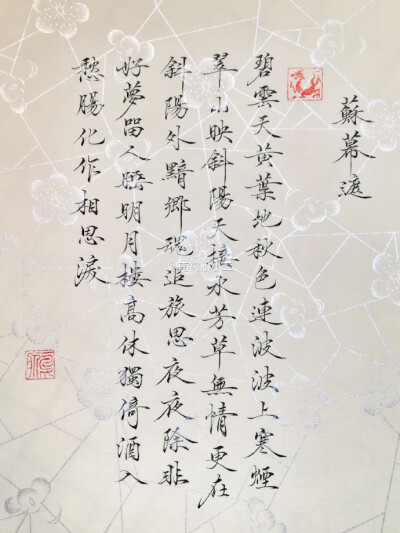 蘇幕遮
碧雲天黃葉地秋色連波波上寒煙
翠山映斜陽天接水芳草無情更在
斜陽外黯鄉魂追旅思夜夜除非
好夢留人睡明月樓高休獨倚酒入
愁腸化作相思淚